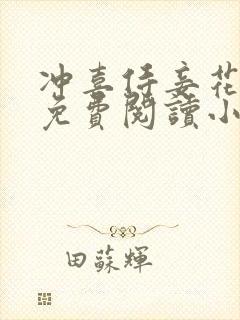 冲喜侍妾花
免費閱讀小
田蘇輝